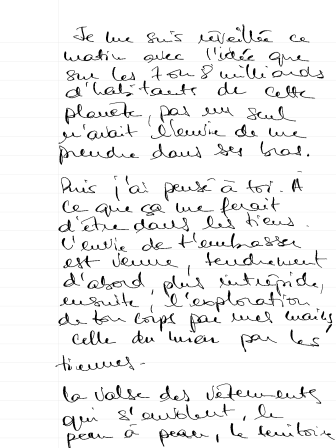 Je me suis réveillée ce
matin avec l'idée que
sur les 7 ou 8 milliards
d'habitants de cette
planète, pas un seul
n'avait l'envie de me
prendre dans ses bras.
Puis j'ai pensé à toi. À
ce que ça me ferait
d'être dans les tiens.
L'envie de t'embrasser
est venue, tendrement
d'abord, plus intrépide,
ensuite, l'exploration
de ton corps par mes mains,
celle du mien par les
tiennes.
La valse des vêtements
qui s'ôtent, le
peau à peau, le territoire